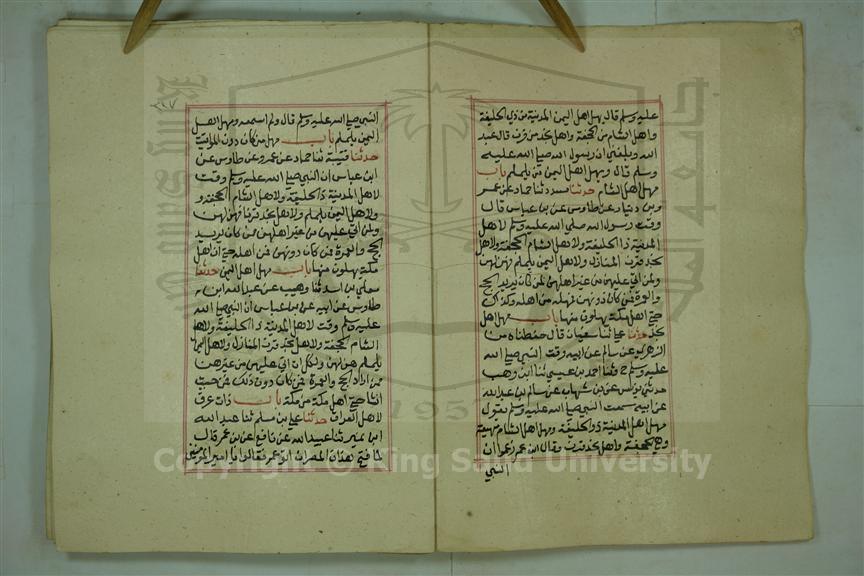 عليه وسلم قال يهل اهل اليمن المدينة من ذي الحليفة
واهل الشام من الجحفة واهل نجد من قرن قال عبد
الله وبلغني ان رسول الله صلى الله عليه
وسلم قال ويهل اهل اليمن من يلملم باب
مهل اهل الشام حدثنا مسدد ثنا حماد عن عمر
وبن دينار عن طاوس عن بن عباس قال
وقت رسول الله صلى الله عليه وسلم لاهل
المدينة ذا الحليفة ولاهل الشام الجحفة ولاهل
نجد قرن المنازل ولاهل اليمن يلملم فهن لهن
ولمن اتى عليهن من غير اهلهن لمن كان يريد الحج
والعمرة فمن كان دونهن فمهله من اهله وكذاك
حتى اهل مكة يهلون منها باب مهل اهل
نجد حدثنا علي ثنا سفيان قال حفظناه من
الزهري عن سالم عن ابيه وقت النبي صلى الله
عليه وسلم ح وثنا احمد بن عيسى ثنا ابن وهب
حدثني يونس عن بن شهاب عن سالم بن عبد الله
عن ابيه سمعت النبي صلى الله عليه وسلم يقول
مهل اهل المدينة ذو الحليفة ومهل اهل الشام مهيعة
وهي الجحفة واهل نجد قرن وقال ابن عمر زعموا ان
النبي
٢٢٧
النبي صلى الله عليه وسلم قال ولم اسمعه ومهل اهل
اليمن يلملم باب مهل من كان دون المواقيت
حدثنا قتيبة ثنا حماد عن عمرو عن طاوس عن
ابن عباس ان النبي صلى الله عليه وسلم وقت
لاهل المدينة ذا الحليفة ولاهل الشام الجحفة و
ولاهل اليمن يلملم ولاهل نجد قرنا فهن لهن
ولمن اتى عليهن من غير اهلهن ممن كان يريد
الحج والعمرة فمن كان دونهن فمن اهله حتى ان اهل
مكة يهلون منها باب مهل اهل اليمن حدثنا
معلى بن اسد ثنا وهيب عن عبد الله ابن
طاوس عن ابيه عن بن عباس ان النبي صلى الله
عليه وسلم وقت لاهل المدينة ذا الحليفة ولاهل
الشام الجحفة ولاهل نجد قرن المنازل ولاهل اليمن
يلملم هن لهن ولكل ات اتى عليهن من غيرهن
ممن اراد الحج والعمرة فمن كان دون ذلك فمن حيث
انشا حتى اهل مكة من مكة باب ذات عرق
لاهل العراق حدثنا علي بن مسلم ثنا عبد الله
ابن نمير ثنا عبيد الله عن نافع عن بن عمر قال
لما فتح هذان المصران اتوا عمر فقالوا يا امير المومنين
1957
Copyright © King Saud University